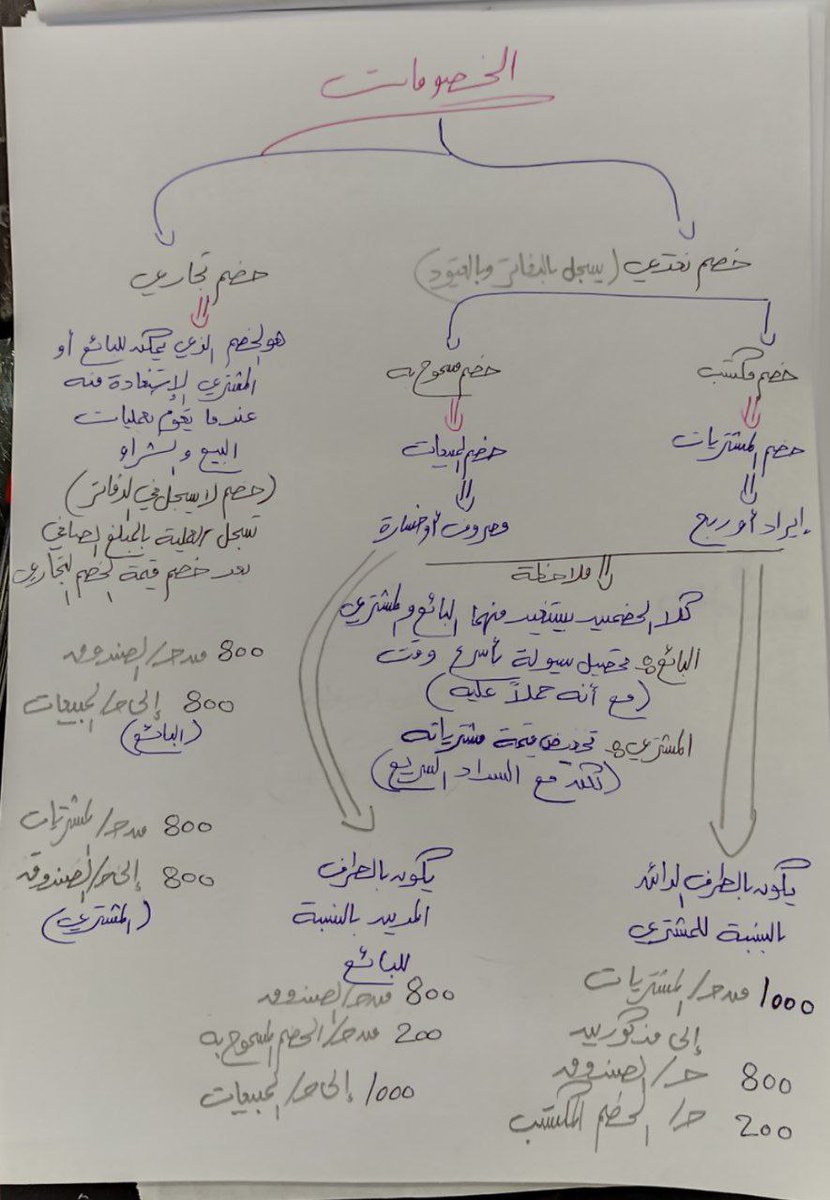 الخصومات
خصم نقدي (يسجل بالدفاتر وبالقيود)
خصم مكتسب
خصم المشتريات
إيراد أو ربح
خصم مسموح به
خصم المبيعات
مصروف أو خسارة
ملاحظة
كلا الخصمين يستفيد منهما البائع والمشتري
البائع: تحصيل سيولة بأسرع وقت
(مع أنه حملاً عليه)
المشتري: تخفيض قيمة مشترياته
(لكنه مع السداد السريع)
يكون بالطرف الدائن
بالنسبة للمشتري
1000 من حـ/ المشتريات
إلى مذكورين
800 حـ/ الصندوق
200 حـ/ الخصم المكتسب
يكون بالطرف
المدين بالنسبة
للبائع
800 من حـ/ الصندوق
200 من حـ/ الخصم المسموح به
1000 إلى حـ/ المبيعات
خصم تجاري
هو الخصم الذي يمكن للبائع أو
المشتري الإستفادة منه
عندما يقوم بعمليات
البيع والشراء
(خصم لا يسجل في الدفاتر)
تسجل العملية بالمبلغ الصافي
بعد خصم قيمة الخصم التجاري
800 من حـ/ الصندوق
800 إلى حـ/ المبيعات
(البائع)
800 من حـ/ المشتريات
800 إلى حـ/ الصندوق
(المشتري)